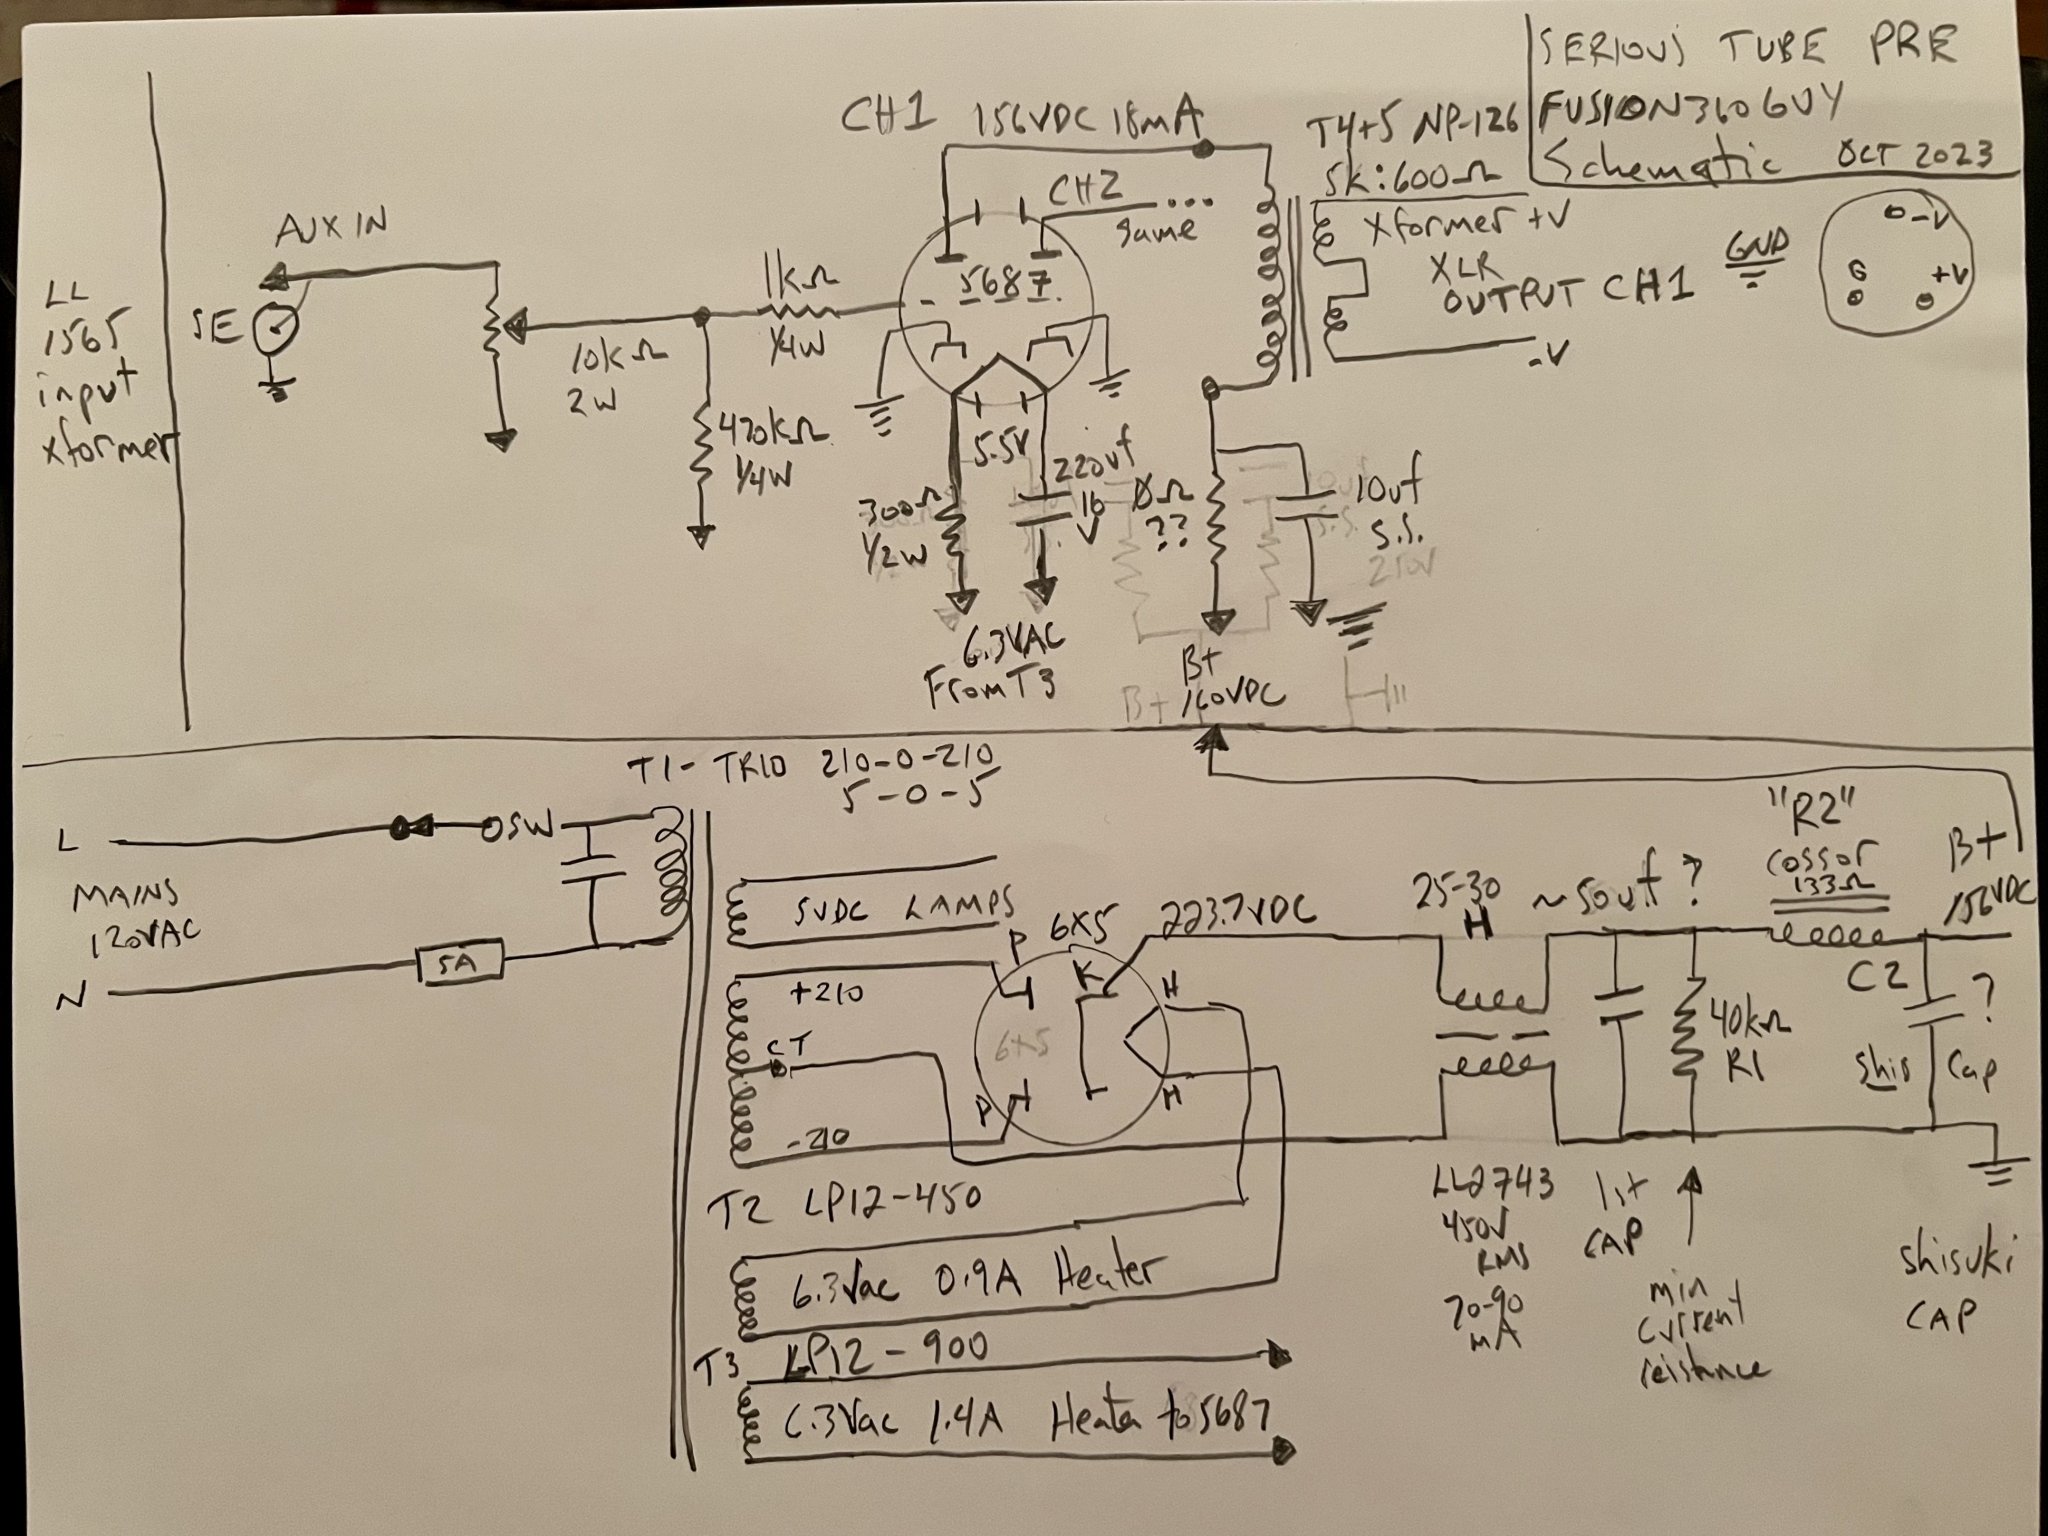 SERIOUS TUBE PRE
FUSION310GUY
Schematic OCT 2023
CH1 156VDC 18mA
T4+5 NP-126
5k:600Ω
Xformer +V
XLR
OUTPUT CH1
-V
GND
-V
G
+V
CH2
same
5687
AUX IN
SE
LL
1565
input
xformer
10kΩ
2W
1kΩ
1/4W
470kΩ
1/4W
5.5V
300Ω
1/2W
220uf
16
V
0Ω
??
10uf
S.S.
250V
6.3VAC
From T3
B+
160VDC
B+
T1- TRIO 210-0-210
5-0-5
L
SW
MAINS
120VAC
N
5A
5VDC LAMPS
+210
CT
-210
P
6X5
K
H
6X5
P
H
223.7VDC
25-30
H
~50uf ?
"R2"
cossor
133Ω
B+
156VDC
40kΩ
R1
C2
?
Shis Cap
LL2743
450V
RMS
70-90
mA
1st
CAP
min
current
reistance
Shisuki
CAP
T2 LP12-450
6.3Vac 0.9A Heater
T3 LP12-900
6.3Vac 1.4A Heater to 5687